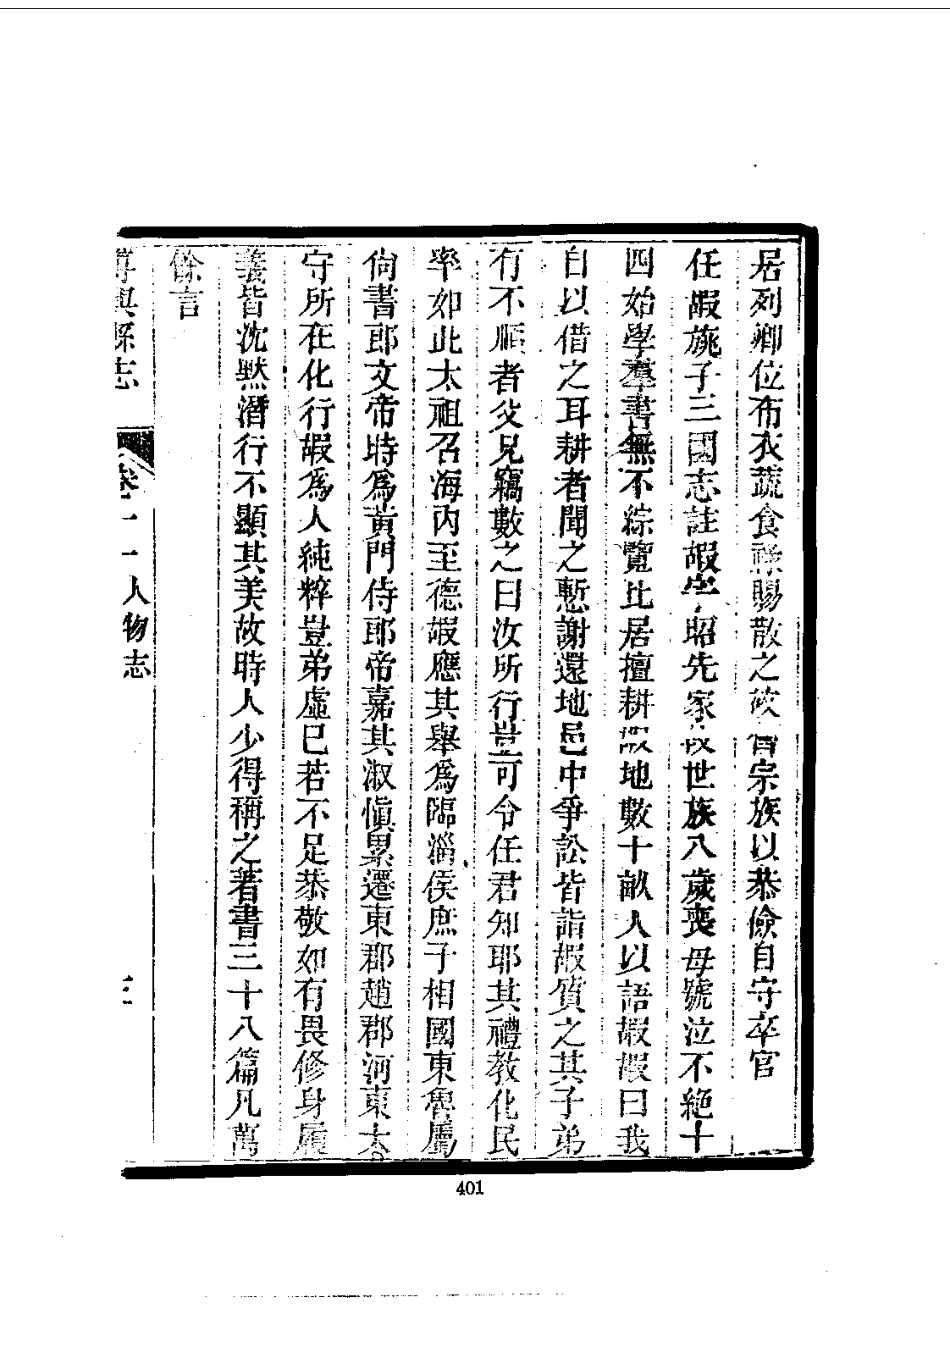 居列卿位布衣蔬食祿賜散之故舊宗族以恭儉自守卒官
任嘏旐子三國志註嘏字昭先家世族八歲喪母號泣不絕十
四始學羣書無不綜覽比居擅耕嘏地數十畝人以語嘏嘏曰我
自以借之耳耕者聞之慙謝還地邑中爭訟皆詣嘏質之其子弟
有不順者父兄竊數之曰汝所行豈可令任君知耶其禮教化民
率如此太祖召海內至德嘏應其舉爲臨淄侯庶子相國東曹屬
尚書郎文帝時爲黃門侍郎帝嘉其淑愼累遷東郡趙郡河東太
守所在化行嘏爲人純粹豈弟虛已若不足恭敬如有畏修身履
義皆沈默潛行不顯其美故時人少得稱之著書三十八篇凡萬
餘言
博興縣志 卷十一人物志 三
401